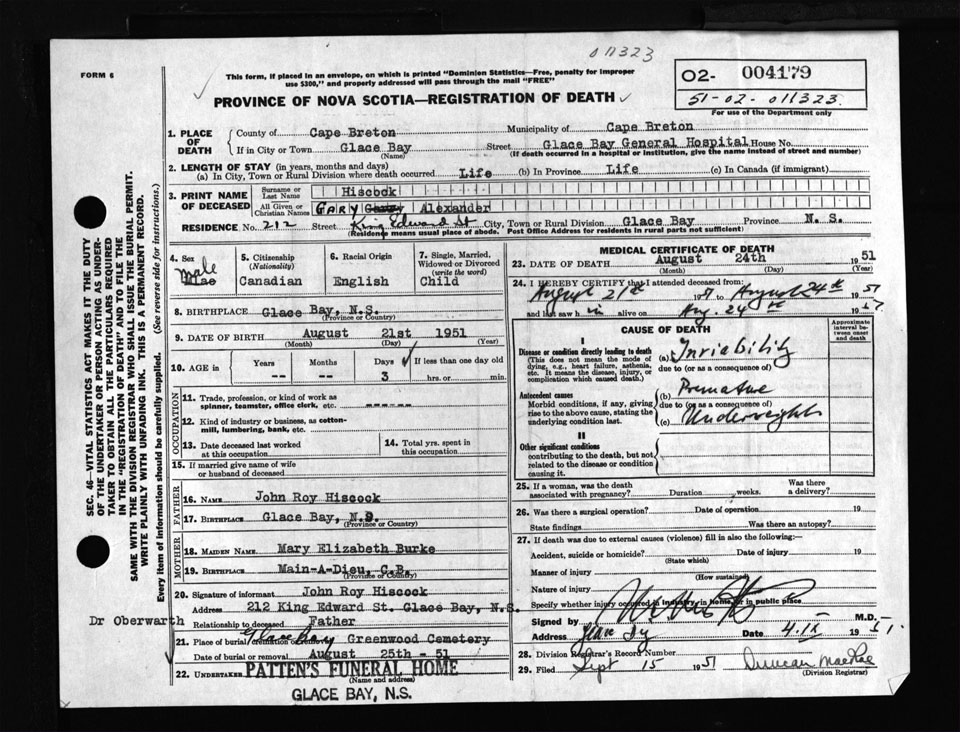 011323
FORM 6
This form, if placed in an envelope, on which is printed "Dominion Statistics—Free, penalty for improper
use $300," and properly addressed will pass through the mail "FREE"
02- 004179
51-02-011323.
For use of the Department only
PROVINCE OF NOVA SCOTIA—REGISTRATION OF DEATH
1. PLACE OF DEATH
County of Cape Breton Municipality of Cape Breton
If in City or Town Glace Bay Street Glace Bay General Hospital House No.
(Name) (If death occurred in a hospital or institution, give the name instead of street and number)
2. LENGTH OF STAY (in years, months and days)
(a) In City, Town or Rural Division where death occurred Life (b) In Province Life (c) In Canada (if immigrant)
3. PRINT NAME OF DECEASED
Surname or Last Name Hiscock
All Given or Christian Names GARY Alexander
RESIDENCE No. 212 Street King Edward St City, Town or Rural Division Glace Bay Province N. S.
(Residence means usual place of abode. Post Office Address for residents in rural parts not sufficient)
4. Sex Male
5. Citizenship (Nationality) Canadian
6. Racial Origin English
7. Single, Married, Widowed or Divorced (write the word) Child
8. BIRTHPLACE Glace Bay, N.S.
(Province or Country)
9. DATE OF BIRTH August 21st 1951
(Month) (Day) (Year)
10. AGE in Years -- Months -- Days 3 If less than one day old hrs. or min.
OCCUPATION
11. Trade, profession, or kind of work as
spinner, teamster, office clerk, etc. -----
12. Kind of industry or business, as cotton-
mill, lumbering, bank, etc.
13. Date deceased last worked
at this occupation
14. Total yrs. spent in
this occupation
15. If married give name of wife
or husband of deceased
FATHER
16. NAME John Roy Hiscock
17. BIRTHPLACE Glace Bay, N.S.
(Province or Country)
MOTHER
18. MAIDEN NAME Mary Elizabeth Burke
19. BIRTHPLACE Main-A-Dieu, C.B.
(Province or Country)
20. Signature of informant John Roy Hiscock
Address 212 King Edward St. Glace Bay, N.S.
Dr Oberwarth
Relationship to deceased Father
21. Place of burial, cremation or removal Glace Bay Greenwood Cemetery
Date of burial or removal August 25th - 51
22. UNDERTAKER PATTEN'S FUNERAL HOME
(Name and address)
GLACE BAY, N.S.
MEDICAL CERTIFICATE OF DEATH
23. DATE OF DEATH August 24th 1951
(Month) (Day) (Year)
24. I HEREBY CERTIFY that I attended deceased from:
August 21st 1951 to August 24th 1951
and last saw him alive on Aug. 24th 1951
CAUSE OF DEATH
Approximate interval between onset and death
I
Disease or condition directly leading to death
(This does not mean the mode of
dying, e.g., heart failure, asthenia,
etc. It means the disease, injury, or
complication which caused death.)
(a) Inviability
due to (or as a consequence of)
Antecedent causes
Morbid conditions, if any, giving
rise to the above cause, stating the
underlying condition last.
(b) Premature
due to (or as a consequence of)
(c) Underweight
II
Other significant conditions
contributing to the death, but not
related to the disease or condition
causing it.
25. If a woman, was the death
associated with pregnancy? Duration weeks. Was there a delivery?
26. Was there a surgical operation? Date of operation 19
State findings Was there an autopsy?
27. If death was due to external causes (violence) fill in also the following:—
Accident, suicide or homicide? Date of injury 19
(State which)
Manner of injury
(How sustained)
Nature of injury
Specify whether injury occurred in industry, in home, or in public place
Signed by M.D.
Address Glace Bay Date 4.IX 1951.
28. Division Registrar's Record Number
29. Filed Sept 15 1951 Duncan MacRae
(Division Registrar)
SEC. 46—VITAL STATISTICS ACT MAKES IT THE DUTY
OF THE UNDERTAKER OR PERSON ACTING AS UNDER-
TAKER TO OBTAIN ALL THE PARTICULARS REQUIRED
IN THE "REGISTRATION OF DEATH" AND TO FILE THE
SAME WITH THE DIVISION REGISTRAR WHO SHALL ISSUE THE BURIAL PERMIT.
WRITE PLAINLY WITH UNFADING INK. THIS IS A PERMANENT RECORD.
Every item of information should be carefully supplied. (See reverse side for instructions.)